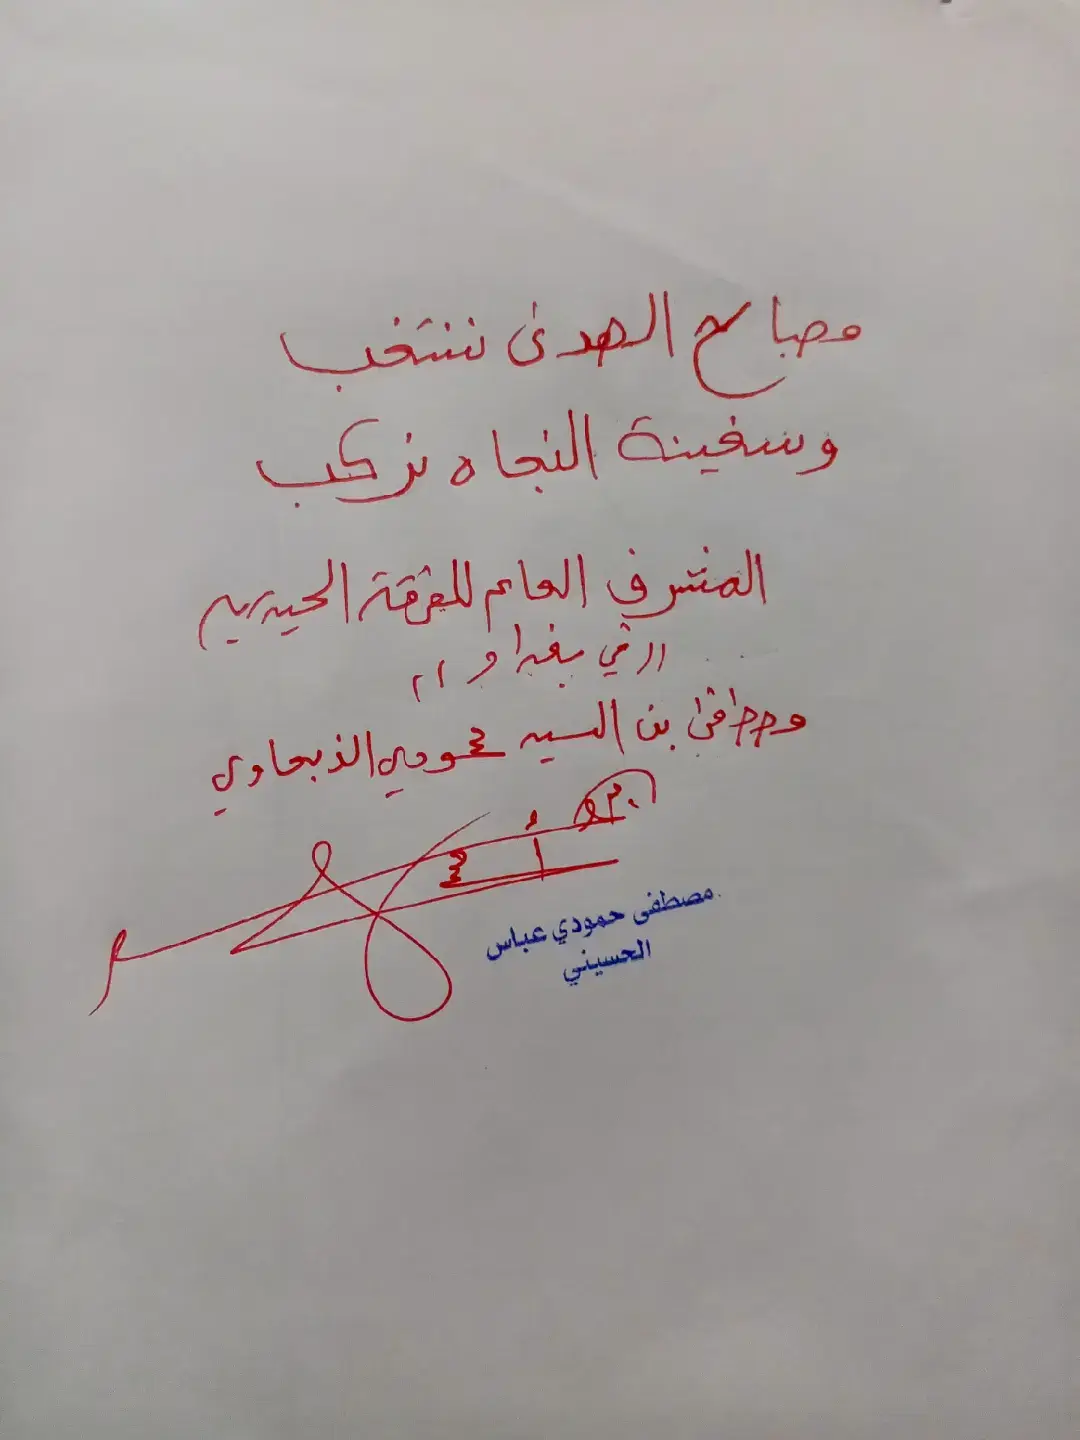 مصباح الهدى ننتخب
وسفينة النجاه نركب
المشرف العام للفرقة الحيدريه
(( في بغداد ))
مصطفى بن السيد حمودي الذبحاوي
مصطفى حمودي عباس
الحسيني